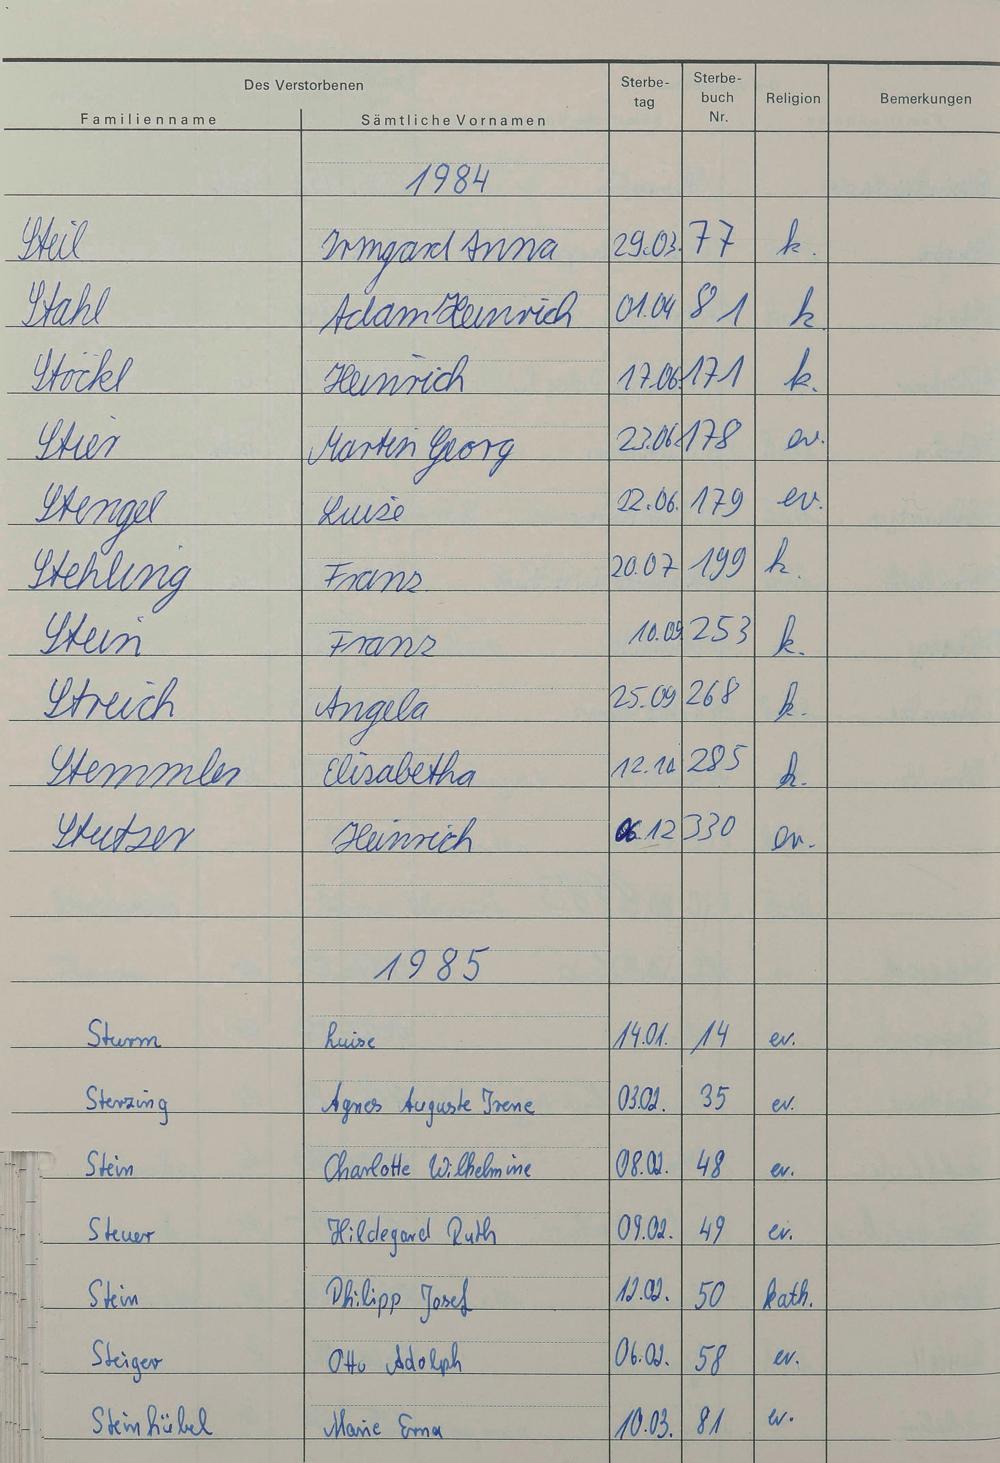 Des Verstorbenen
Familienname Sämtliche Vornamen Sterbe-tag Sterbe-buch Nr. Religion Bemerkungen
1984
Steil Irmgard Anna 29.03. 77 k.
Stahl Adam Heinrich 01.04 81 k.
Stöckl Heinrich 17.06 171 k.
Stier Martin Georg 23.06 178 ev.
Stengel Luise 22.06. 179 ev.
Stehling Franz 20.07 199 k.
Stein Franz 10.09 253 k.
Streich Angela 25.09 268 k.
Stemmler Elisabetha 12.10 285 k.
Stutzer Heinrich 06.12 330 ev.
1985
Sturm Luise 14.01. 14 ev.
Sterzing Agnes Auguste Irene 03.02. 35 ev.
Stein Charlotte Wilhelmine 08.02. 48 ev.
Steuer Hildegard Ruth 09.02. 49 ev.
Stein Philipp Josef 12.02. 50 kath.
Steiger Otto Adolph 06.02. 58 ev.
Steinhübel Marie Erna 10.03. 81 ev.